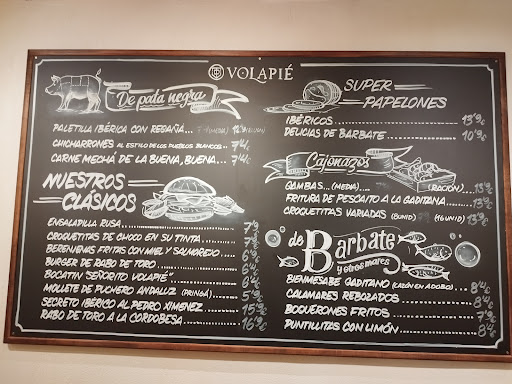 VOLAPIÉ
De pata negra
PALETILLA IBÉRICA CON REGAÑÁ...
CHICHARRONES AL ESTILO DE LOS PUEBLOS BLANCOS... 7'4€
CARNE MECHÁ DE LA BUENA, BUENA... 7'4€
NUESTROS CLÁSICOS
ENSALADILLA RUSA
CROQUETITAS DE CHOCO EN SU TINTA
BERENJENAS FRITAS CON MIEL Y SALMOREJO
BURGER DE RABO DE TORO
BOCATÍN "SEÑORITO VOLAPIÉ"
MOLLETE DE PUCHERO ANDALUZ (PRINGÁ)
SECRETO IBÉRICO AL PEDRO XIMENEZ
RABO DE TORO A LA CORDOBESA
SUPER PAPELONES
IBÉRICOS 13'9€
DELICIAS DE BARBATE 10'9€
Cajonazos
GAMBAS...(MEDIA)... (RACIÓN) 13'9€
FRITURA DE PESCAITO A LA GADITANA 13'9€
CROQUETITAS VARIADAS (8UNID) (16UNID) 13'9€
de Barbate
y otros mares
BIENMESABE GADITANO (CAZÓN EN ADOBO) 8'4€
CALAMARES REBOZADOS 8'4€
BOQUERONES FRITOS
PUNTILLITAS CON LIMÓN 8'4€